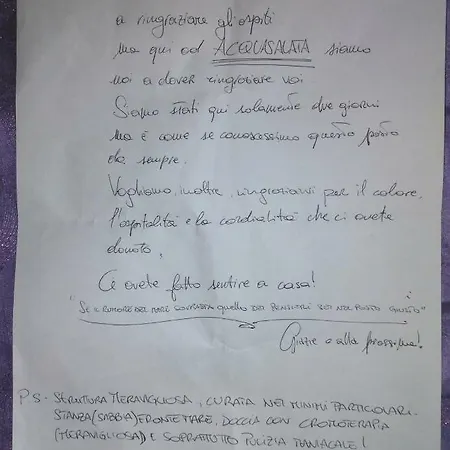 a ringraziare gli ospiti
ma qui ad ACQUASALATA siamo
noi a dover ringraziare voi
Siamo stati qui solamente due giorni
ma è come se conoscessimo questo posto
da sempre.
Vogliamo, inoltre, ringraziarvi per il calore,
l'ospitalità e la cordialità che ci avete
donato.
Ci avete fatto sentire a casa!
"SE IL RUMORE DEL MARE SOVRASTA quello DEI PENSIERI SEI NEL POSTO GIUSTO"
Grazie e alla prossima!
PS - STRUTTURA MERAVIGLIOSA, CURATA NEI MINIMI PARTICOLARI.
STANZA (SABBIA) FRONTE MARE, DOCCIA CON CROMOTERAPIA
(MERAVIGLIOSA) E SOPRATTUTTO PULIZIA MANIACALE!